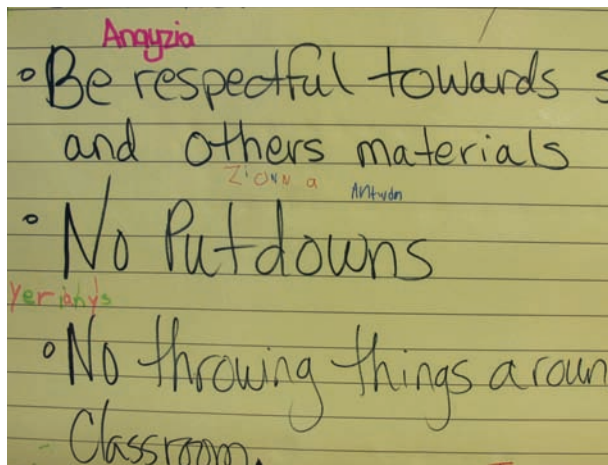 Angyzia
Be respectful towards s
and others materials
Z'onna Antwan
No Putdowns
Yeriahys
No throwing things aroun
Classroom.